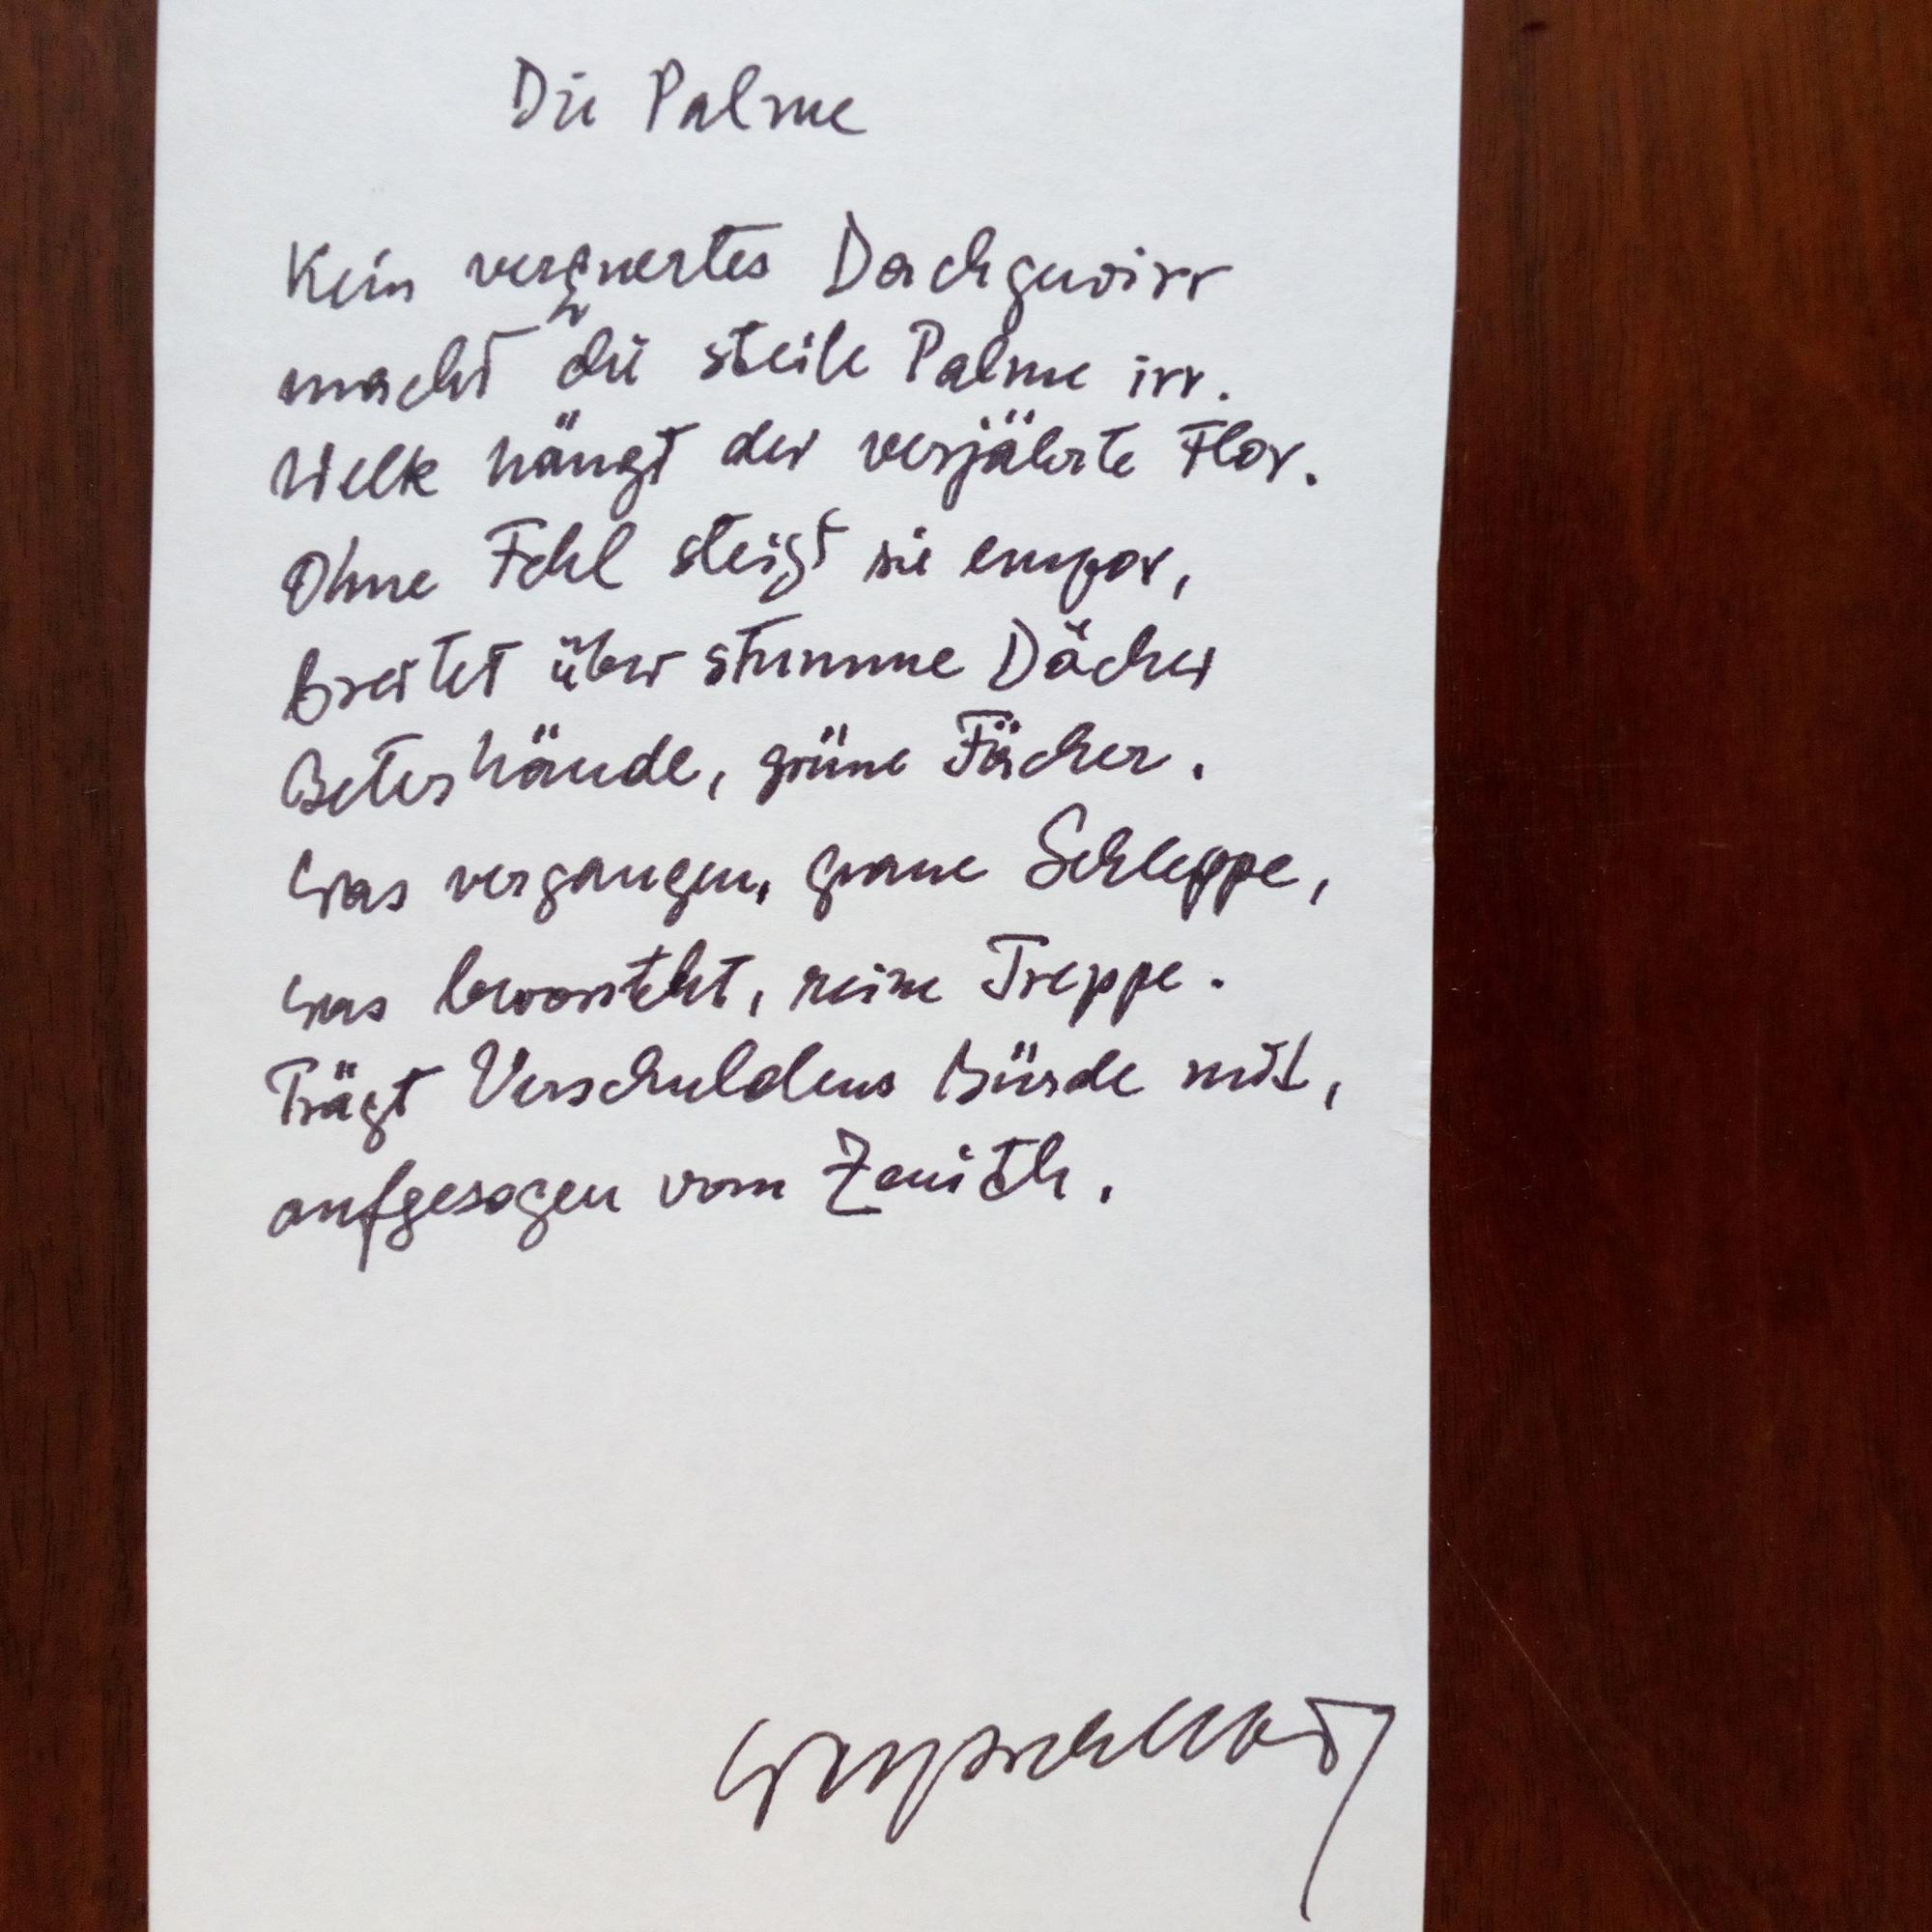 Die Palme
Kein verquertes Dachgewirr
macht die steile Palme irr.
Welk hängt der verjährte Flor.
Ohne Fehl steigt sie empor,
breitet über stumme Dächer
Beterhände, grüne Fächer.
Was vergangen, graue Schleppe,
was bevorsteht, reine Treppe.
Trägt Verschuldens Bürde mit,
aufgesogen vom Zenith.